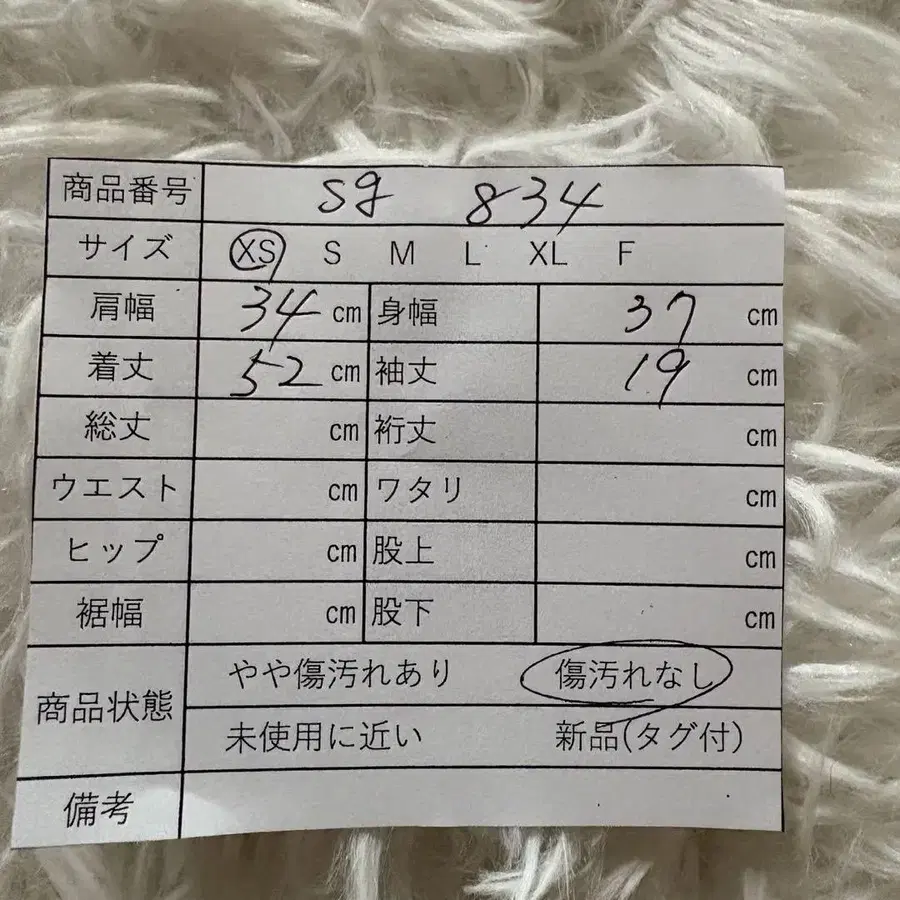 商品番号 sg 834
サイズ XS S M L XL F
肩幅 34 cm 身幅 37 cm
着丈 52 cm 袖丈 19 cm
総丈 cm 裄丈 cm
ウエスト cm ワタリ cm
ヒップ cm 股上 cm
裾幅 cm 股下 cm
商品状態 やや傷汚れあり 傷汚れなし
未使用に近い 新品(タグ付)
備考